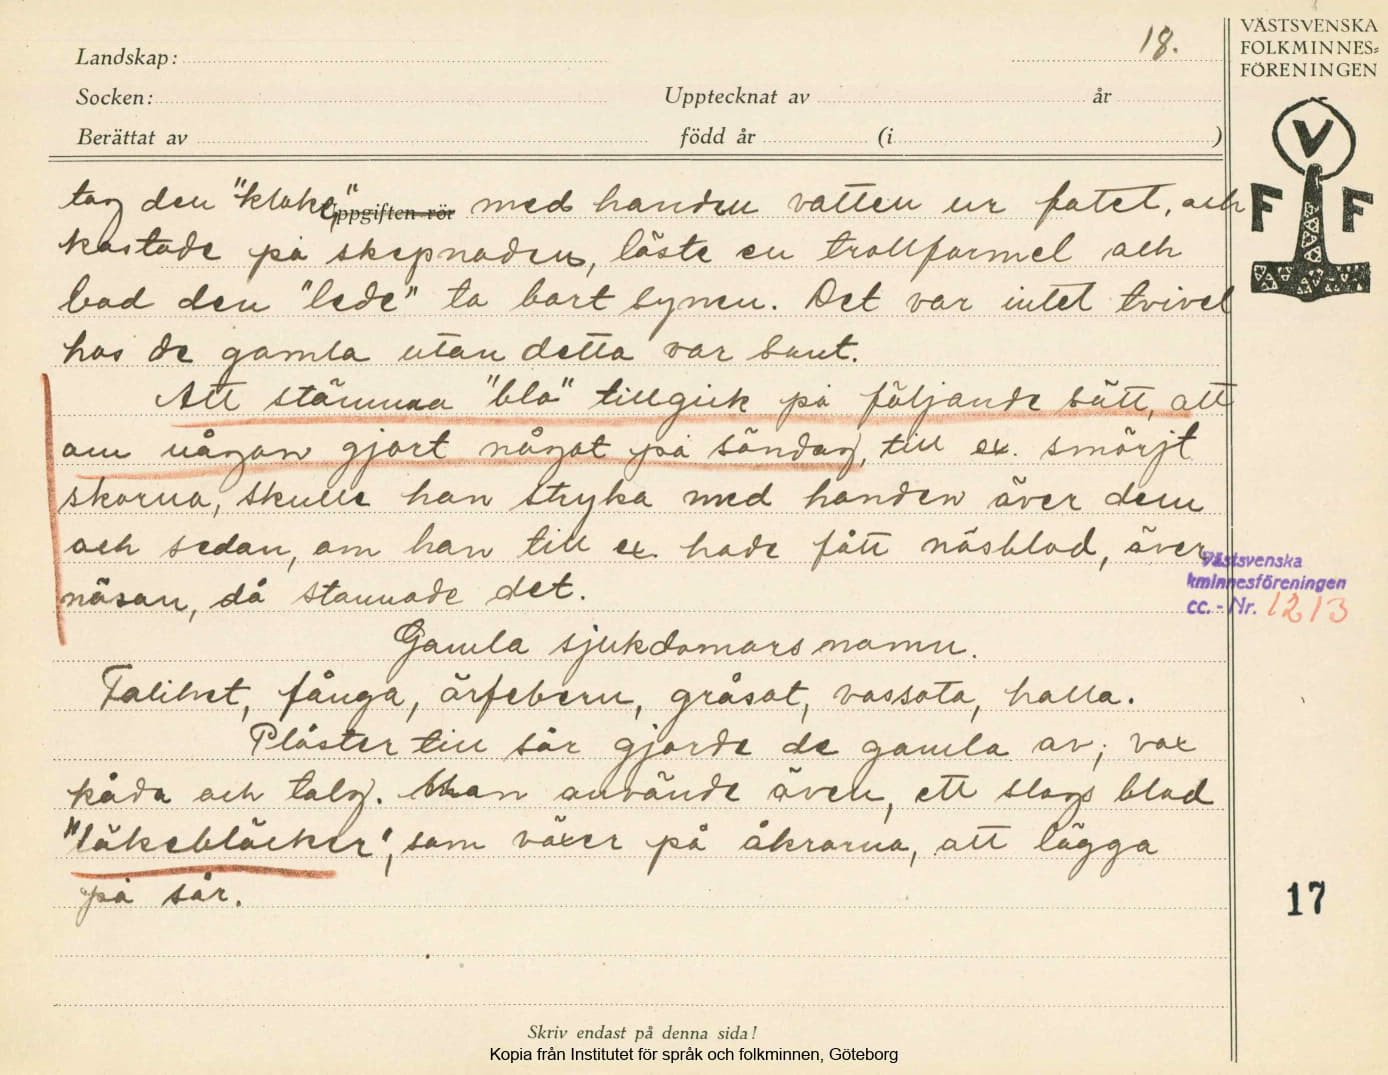 18.
VÄSTSVENSKA
FOLKMINNES=
FÖRENINGEN
Landskap:
Socken: Upptecknat av år
Berättat av född år (i )
V
F F
tog den "kloke" Uppgiften rör med handen vatten ur fatet, och
kastade på skepnaden, läste en trollformel och
bad den "lede" ta bort synen. Det var intet tvivel
hos de gamla utan detta var sant.
Att stämma "blo" tillgick på följande sätt, att
om någon gjort något på söndag, till ex. smörjt
skorna, skulle han stryka med handen över dem
och sedan, om han till ex. hade fått näsblod, över
näsan, då stannade det.
Västsvenska
kminnesföreningen
cc. - Nr. 1213
Gamla sjukdomars namn.
Falihet, fånga, ärfebern, gråsot, vassota, halla.
Plåster till sår gjorde de gamla av; vax
kåda och talg. Man använde även, ett slags blad
"läkebläcker", som växer på åkrarna, att lägga
på sår.
17
Skriv endast på denna sida!
Kopia från Institutet för språk och folkminnen, Göteborg